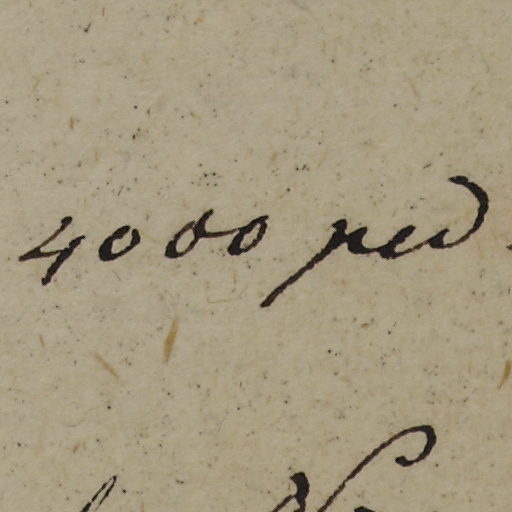 4000 ped.